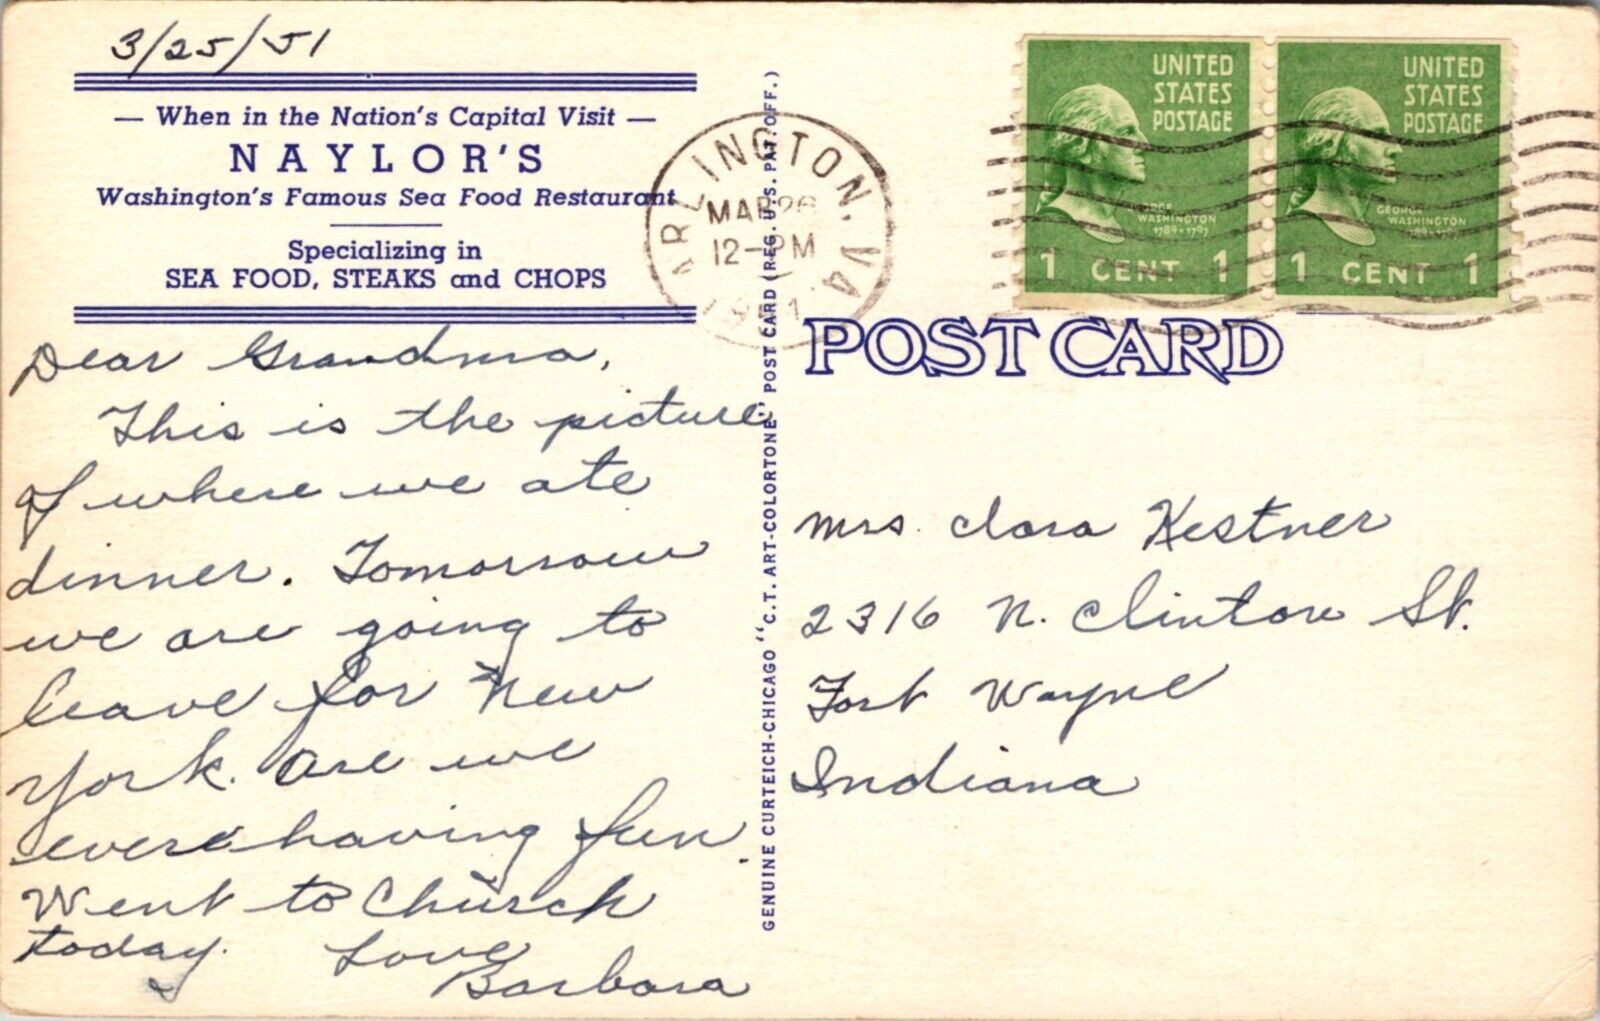 3/25/51
— When in the Nation's Capital Visit —
NAYLOR'S
Washington's Famous Sea Food Restaurant
Specializing in
SEA FOOD, STEAKS and CHOPS
Dear Grandma,
This is the picture
of where we ate
dinner. Tomorrow
we are going to
leave for New
York. Are we
ever having fun.
Went to Church
today. Love
Barbara
GENUINE CURTEICH-CHICAGO "C.T. ART-COLORTONE" POST CARD (REG. U.S. PAT. OFF.)
ARLINGTON, VA
MAR 26
12-PM
1951
UNITED
STATES
POSTAGE
GEORGE
WASHINGTON
1789-1797
1 CENT 1
UNITED
STATES
POSTAGE
GEORGE
WASHINGTON
1789-1797
1 CENT 1
POST CARD
Mrs. Clara Kestner
2316 N. Clinton St.
Fort Wayne
Indiana